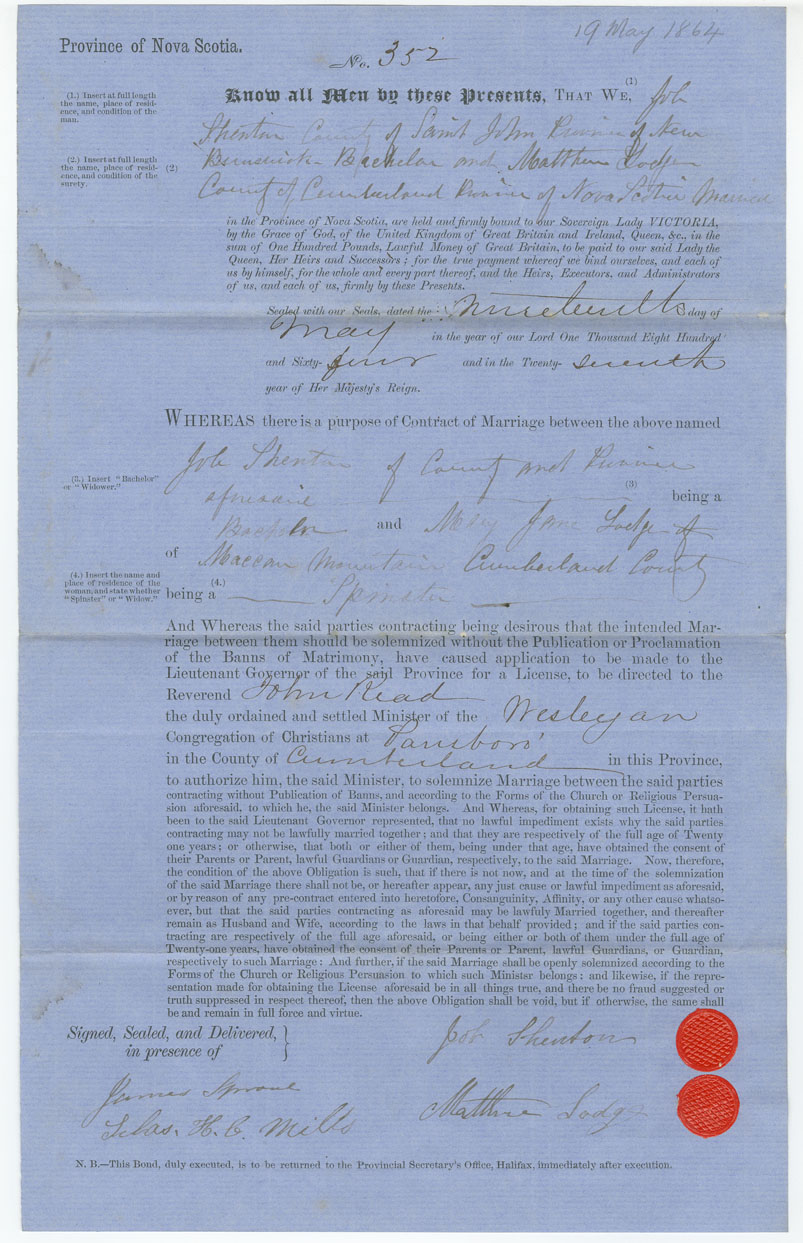 19 May 1864
Province of Nova Scotia.
No. 352
(1.) Insert at full length
the name, place of resid-
ence, and condition of the
man.
Know all Men by these Presents, THAT WE, (1) Job
Shenton County of Saint John Province of New
(2.) Insert at full length
the name, place of resid-
ence, and condition of the
surety.
(2) Brunswick Bachelor and Matthew Lodge
County of Cumberland Province of Nova Scotia Married
in the Province of Nova Scotia, are held and firmly bound to our Sovereign Lady VICTORIA,
by the Grace of God, of the United Kingdom of Great Britain and Ireland, Queen, &c., in the
sum of One Hundred Pounds, Lawful Money of Great Britain, to be paid to our said Lady the
Queen, Her Heirs and Successors; for the true payment whereof we bind ourselves, and each of
us by himself, for the whole and every part thereof, and the Heirs, Executors, and Administrators
of us, and each of us, firmly by these Presents.
Sealed with our Seals, dated the Nineteenth day of
May in the year of our Lord One Thousand Eight Hundred
and Sixty-four and in the Twenty-seventh
year of Her Majesty's Reign.
WHEREAS there is a purpose of Contract of Marriage between the above named
Job Shenton of County and Province
(3.) Insert "Bachelor"
or "Widower."
aforesaid (3) being a
Bachelor and Mary Jane Lodge of
of Maccan Mountain Cumberland County
(4.) Insert the name and
place of residence of the
woman, and state whether
"Spinster" or "Widow."
being a (4.) Spinster
And Whereas the said parties contracting being desirous that the intended Mar-
riage between them should be solemnized without the Publication or Proclamation
of the Banns of Matrimony, have caused application to be made to the
Lieutenant Governor of the said Province for a License, to be directed to the
Reverend John Read
the duly ordained and settled Minister of the Wesleyan
Congregation of Christians at Parrsboro'
in the County of Cumberland in this Province,
to authorize him, the said Minister, to solemnize Marriage between the said parties
contracting without Publication of Banns, and according to the Forms of the Church or Religious Persua-
sion aforesaid, to which he, the said Minister belongs. And Whereas, for obtaining such License, it hath
been to the said Lieutenant Governor represented, that no lawful impediment exists why the said parties
contracting may not be lawfully married together; and that they are respectively of the full age of Twenty
one years; or otherwise, that both or either of them, being under that age, have obtained the consent of
their Parents or Parent, lawful Guardians or Guardian, respectively, to the said Marriage. Now, therefore,
the condition of the above Obligation is such, that if there is not now, and at the time of the solemnization
of the said Marriage there shall not be, or hereafter appear, any just cause or lawful impediment as aforesaid,
or by reason of any pre-contract entered into heretofore, Consanguinity, Affinity, or any other cause whatso-
ever, but that the said parties contracting as aforesaid may be lawfuly Married together, and thereafter
remain as Husband and Wife, according to the laws in that behalf provided; and if the said parties con-
tracting are respectively of the full age aforesaid, or being either or both of them under the full age of
Twenty-one years, have obtained the consent of their Parents or Parent, lawful Guardians, or Guardian,
respectively to such Marriage: And further, if the said Marriage shall be openly solemnized according to the
Forms of the Church or Religious Persuasion to which such Ministsr belongs; and likewise, if the repre-
sentation made for obtaining the License aforesaid be in all things true, and there be no fraud suggested or
truth suppressed in respect thereof, then the above Obligation shall be void, but if otherwise, the same shall
be and remain in full force and virtue.
Signed, Sealed, and Delivered,
in presence of
Job Shenton
James Sproul
Silas. H. C. Mills
Matthew Lodge
N. B.—This Bond, duly executed, is to be returned to the Provincial Secretary's Office, Halifax, immediately after execution.